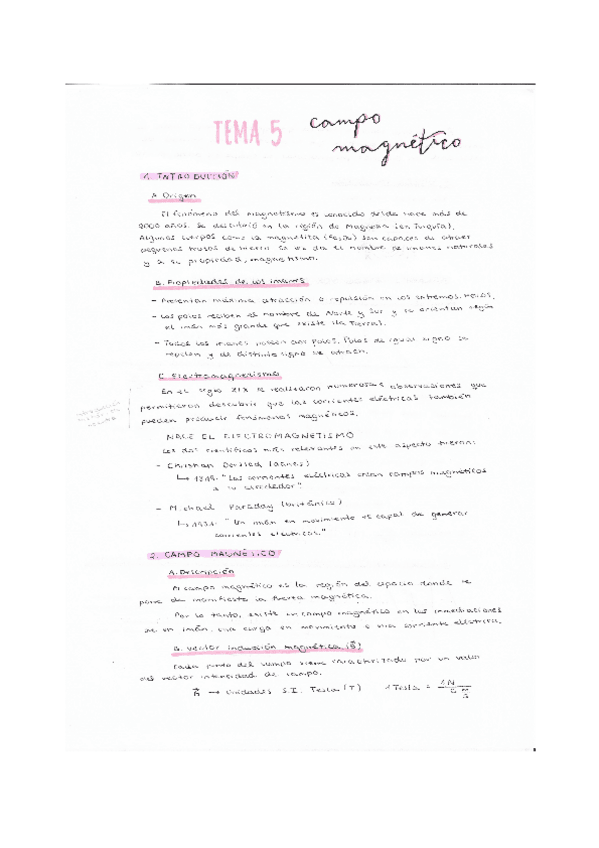 TEMA 5 campo magnético
1. INTRODUCCIÓN
A. Origen
El fenómeno del magnetismo es conocido desde hace más de
2000 años. Se descubrió en la región de Magnesia (en Turquía).
Algunos cuerpos como la magnetita (Fe₃O₄) son capaces de atraer
pequeños trozos de hierro. Se les da el nombre de imanes naturales
y a su propiedad, magnetismo.
B. Propiedades de los imanes
- Presentan máxima atracción o repulsión en los extremos: polos.
- Los polos reciben el nombre de Norte y Sur y se orientan según
el imán más grande que existe (la Tierra).
- Todos los imanes poseen dos polos. Polos de igual signo se
repelen y de distinto signo se atraen.
C. Electromagnetismo
En el siglo XIX se realizaron numerosas observaciones que
permitieron descubrir que las corrientes eléctricas también
pueden producir fenómenos magnéticos.
NACE EL ELECTROMAGNETISMO
Los dos científicos más relevantes en este aspecto fueron:
- Christian Oersted (danés)
↳ "Las corrientes eléctricas crean campos magnéticos
a su alrededor".
- Michael Faraday (británico)
↳ 1831: "Un imán en movimiento es capaz de generar
corrientes eléctricas."
2. CAMPO MAGNÉTICO
A. Descripción
El campo magnético es la región del espacio donde se
pone de manifiesto la fuerza magnética.
Por lo tanto, existe un campo magnético en las inmediaciones
de un imán, una carga en movimiento o una corriente eléctrica.
B. Vector inducción magnética (B⃗)
Cada punto del campo viene caracterizado por un valor
del vector intensidad de campo.
B⃗ → Unidades S.I. Tesla (T) 1 Tesla = 1N / C m/s